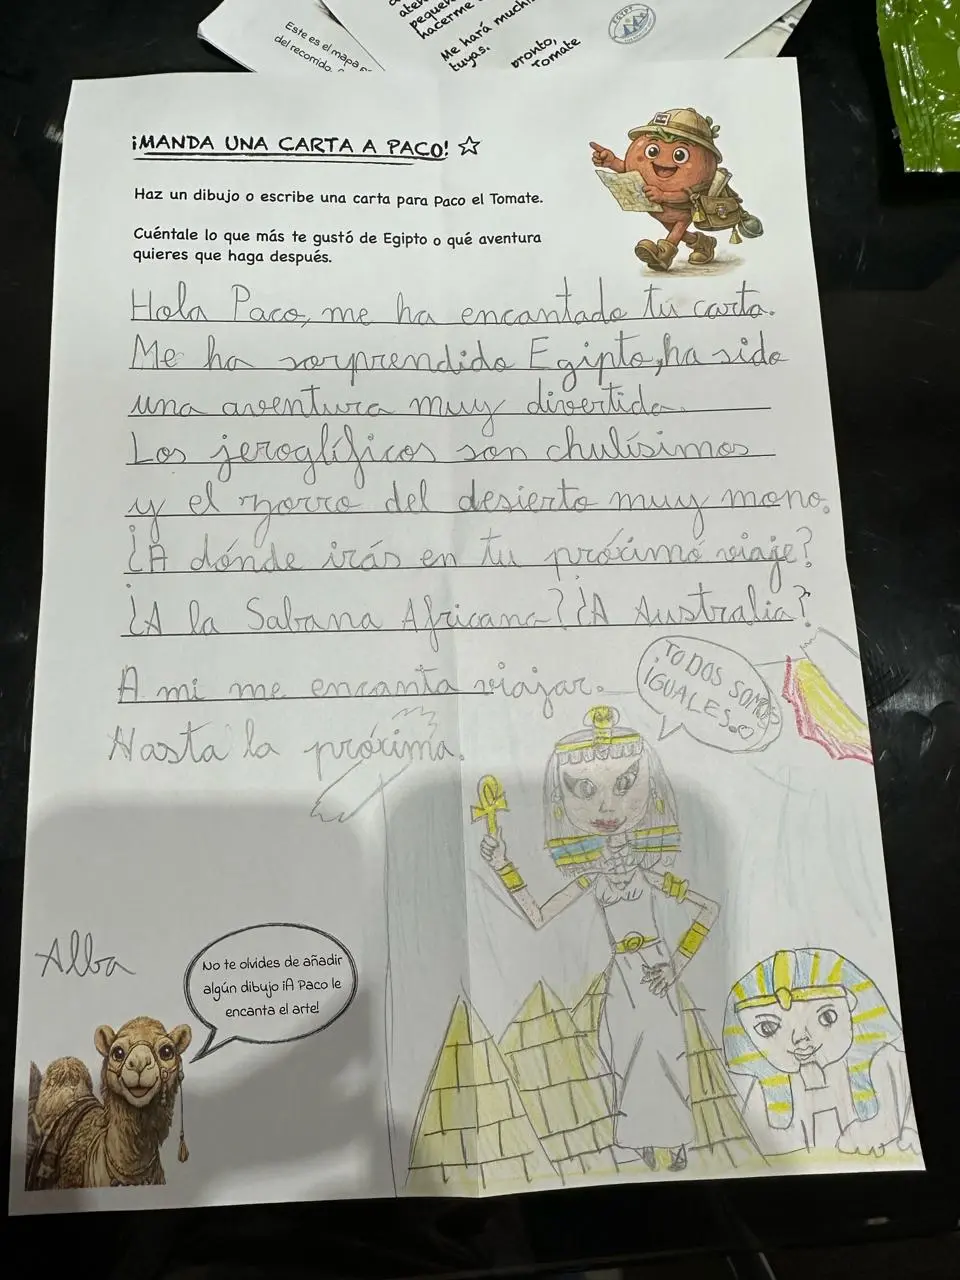 Este es el mapa
del recorrido.
peque
hacerme
Me hará much
tuyas.
pronto,
Tomate
EGYPT
¡MANDA UNA CARTA A PACO!
Haz un dibujo o escribe una carta para Paco el Tomate.
Cuéntale lo que más te gustó de Egipto o qué aventura
quieres que haga después.
Hola Paco, me ha encantado tú carta.
Me ha sorprendido Egipto, ha sido
una aventura muy divertida.
Los jeroglíficos son chulísimos
y el zorro del desierto muy mono.
¿A dónde irás en tu próximo viaje?
¿A la Sabana Africana? ¿A Australia?
A mi me encanta viajar.
Hasta la próxima.
TODOS SOMOS
IGUALES.
Alba
No te olvides de añadir
algún dibujo ¡A Paco le
encanta el arte!